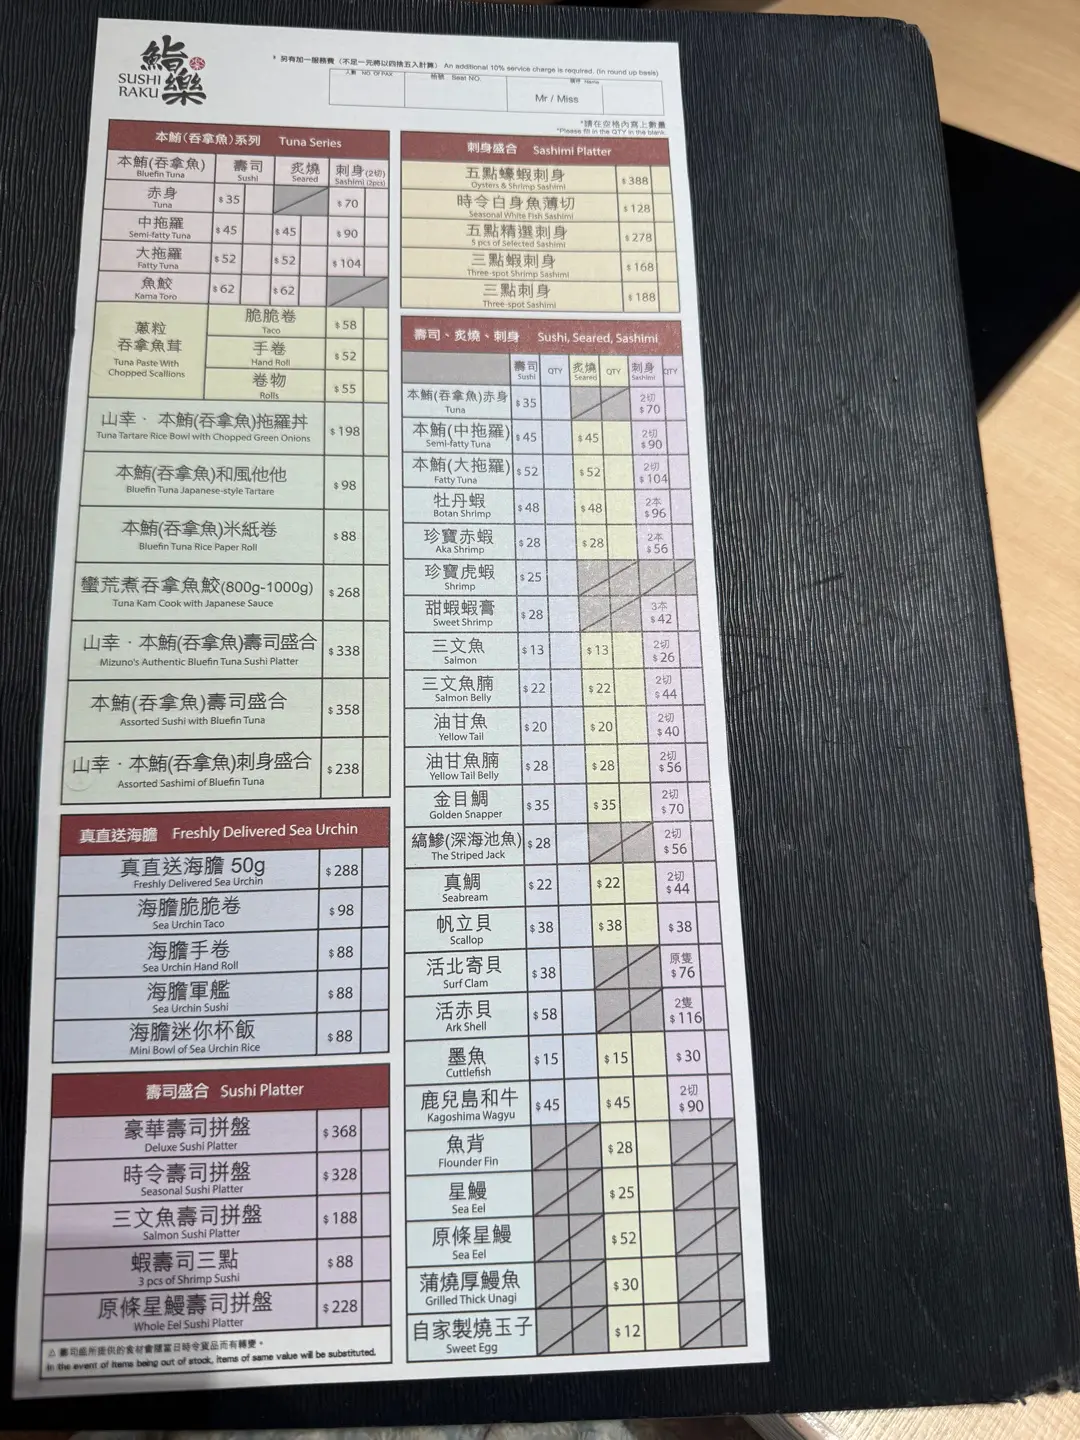 鮨樂
SUSHI
RAKU
* 另有加一服務費（不足一元將以四捨五入計算） An additional 10% service charge is required. (In round up basis)
人數 NO. OF PAX
枱號 Seat NO.
Name
Mr / Miss
*請在空格內寫上數量
*Please fill in the QTY in the blank.
本鮪(吞拿魚)系列 Tuna Series
本鮪(吞拿魚) 壽司 炙燒 刺身(2切)
Bluefin Tuna Sushi Seared Sashimi (2pcs)
赤身 $35 $70
Tuna
中拖羅 $45 $45 $90
Semi-fatty Tuna
大拖羅 $52 $52 $104
Fatty Tuna
魚鮫 $62 $62
Kama Toro
蔥粒
吞拿魚茸
Tuna Paste With
Chopped Scallions
脆脆卷 $58
Taco
手卷 $52
Hand Roll
卷物 $55
Rolls
山幸‧本鮪(吞拿魚)拖羅丼 $198
Tuna Tartare Rice Bowl with Chopped Green Onions
本鮪(吞拿魚)和風他他 $98
Bluefin Tuna Japanese-style Tartare
本鮪(吞拿魚)米紙卷 $88
Bluefin Tuna Rice Paper Roll
蠻荒煮吞拿魚鮫(800g-1000g) $268
Tuna Kam Cook with Japanese Sauce
山幸‧本鮪(吞拿魚)壽司盛合 $338
Mizuno's Authentic Bluefin Tuna Sushi Platter
本鮪(吞拿魚)壽司盛合 $358
Assorted Sushi with Bluefin Tuna
山幸‧本鮪(吞拿魚)刺身盛合 $238
Assorted Sashimi of Bluefin Tuna
真直送海膽 Freshly Delivered Sea Urchin
真直送海膽 50g $288
Freshly Delivered Sea Urchin
海膽脆脆卷 $98
Sea Urchin Taco
海膽手卷 $88
Sea Urchin Hand Roll
海膽軍艦 $88
Sea Urchin Sushi
海膽迷你杯飯 $88
Mini Bowl of Sea Urchin Rice
壽司盛合 Sushi Platter
豪華壽司拼盤 $368
Deluxe Sushi Platter
時令壽司拼盤 $328
Seasonal Sushi Platter
三文魚壽司拼盤 $188
Salmon Sushi Platter
蝦壽司三點 $88
3 pcs of Shrimp Sushi
原條星鰻壽司拼盤 $228
Whole Eel Sushi Platter
△ 壽司組所提供的食材會隨當日時令貨品而有轉變。
In the event of items being out of stock, items of same value will be substituted.
刺身盛合 Sashimi Platter
五點蠔蝦刺身 $388
Oysters & Shrimp Sashimi
時令白身魚薄切 $128
Seasonal White Fish Sashimi
五點精選刺身 $278
5 pcs of Selected Sashimi
三點蝦刺身 $168
Three-spot Shrimp Sashimi
三點刺身 $188
Three-spot Sashimi
壽司、炙燒、刺身 Sushi, Seared, Sashimi
壽司 QTY 炙燒 QTY 刺身 QTY
Sushi Seared Sashimi
本鮪(吞拿魚)赤身 $35 2切 $70
Tuna
本鮪(中拖羅) $45 $45 2切 $90
Semi-fatty Tuna
本鮪(大拖羅) $52 $52 2切 $104
Fatty Tuna
牡丹蝦 $48 $48 2本 $96
Botan Shrimp
珍寶赤蝦 $28 $28 2本 $56
Aka Shrimp
珍寶虎蝦 $25
Shrimp
甜蝦蝦膏 $28 3本 $42
Sweet Shrimp
三文魚 $13 $13 2切 $26
Salmon
三文魚腩 $22 $22 2切 $44
Salmon Belly
油甘魚 $20 $20 2切 $40
Yellow Tail
油甘魚腩 $28 $28 2切 $56
Yellow Tail Belly
金目鯛 $35 $35 2切 $70
Golden Snapper
縞鰺(深海池魚) $28 2切 $56
The Striped Jack
真鯛 $22 $22 2切 $44
Seabream
帆立貝 $38 $38 $38
Scallop
活北寄貝 $38 原隻 $76
Surf Clam
活赤貝 $58 2隻 $116
Ark Shell
墨魚 $15 $15 $30
Cuttlefish
鹿兒島和牛 $45 $45 2切 $90
Kagoshima Wagyu
魚背 $28
Flounder Fin
星鰻 $25
Sea Eel
原條星鰻 $52
Sea Eel
蒲燒厚鰻魚 $30
Grilled Thick Unagi
自家製燒玉子 $12
Sweet Egg